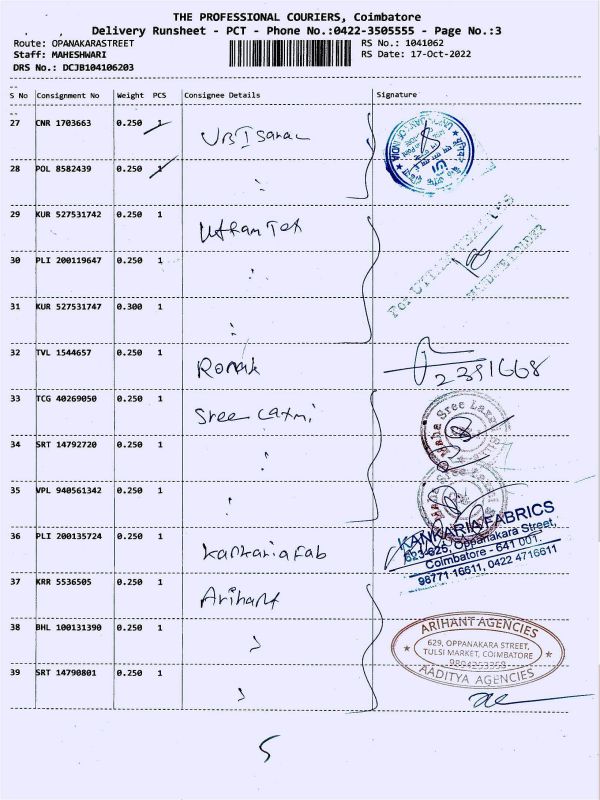 THE PROFESSIONAL COURIERS, Coimbatore
Delivery Runsheet - PCT - Phone No.:0422-3505555 - Page No.:3
Route: OPANAKARASTREET RS No.: 1041062
Staff: MAHESHWARI RS Date: 17-Oct-2022
DRS No.: DCJB104106203
S No Consignment No Weight PCS Consignee Details Signature
27 CNR 1703663 0.250 1
28 POL 8582439 0.250 1
29 KUR 527531742 0.250 1
30 PLI 200119647 0.250 1
31 KUR 527531747 0.300 1
32 TVL 1544657 0.250 1 Ronak 2391668
33 TCG 40269050 0.250 1 Sree Laxmi
34 SRT 14792720 0.250 1
35 VPL 940561342 0.250 1
36 PLI 200135724 0.250 1 Kankaria fab
KANKARIA FABRICS
623-625, Oppanakara Street,
Coimbatore - 641 001.
98771 16611, 0422 4716611
37 KRR 5536505 0.250 1 Arihant
38 BHL 100131390 0.250 1
39 SRT 14790801 0.250 1
ARIHANT AGENCIES
629, OPPANAKARA STREET,
TULSI MARKET, COIMBATORE
AADITYA AGENCIES
5